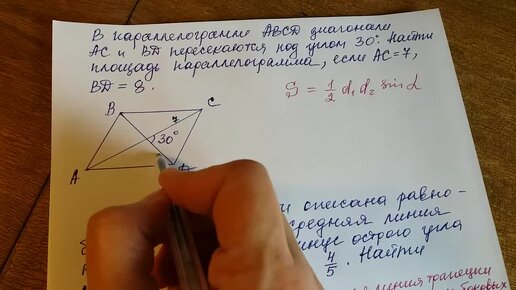 В параллелограмме ABCD диагонали
AC и BD пересекаются под углом 30°. Найти
площадь параллелограмма, если AC = 7,
BD = 8.
S = 1/2 d₁ d₂ sin α
B
C
7
30°
A
и описана равно-
средняя линия
острого угла
4/5. Найти
линия трапеции
боковых